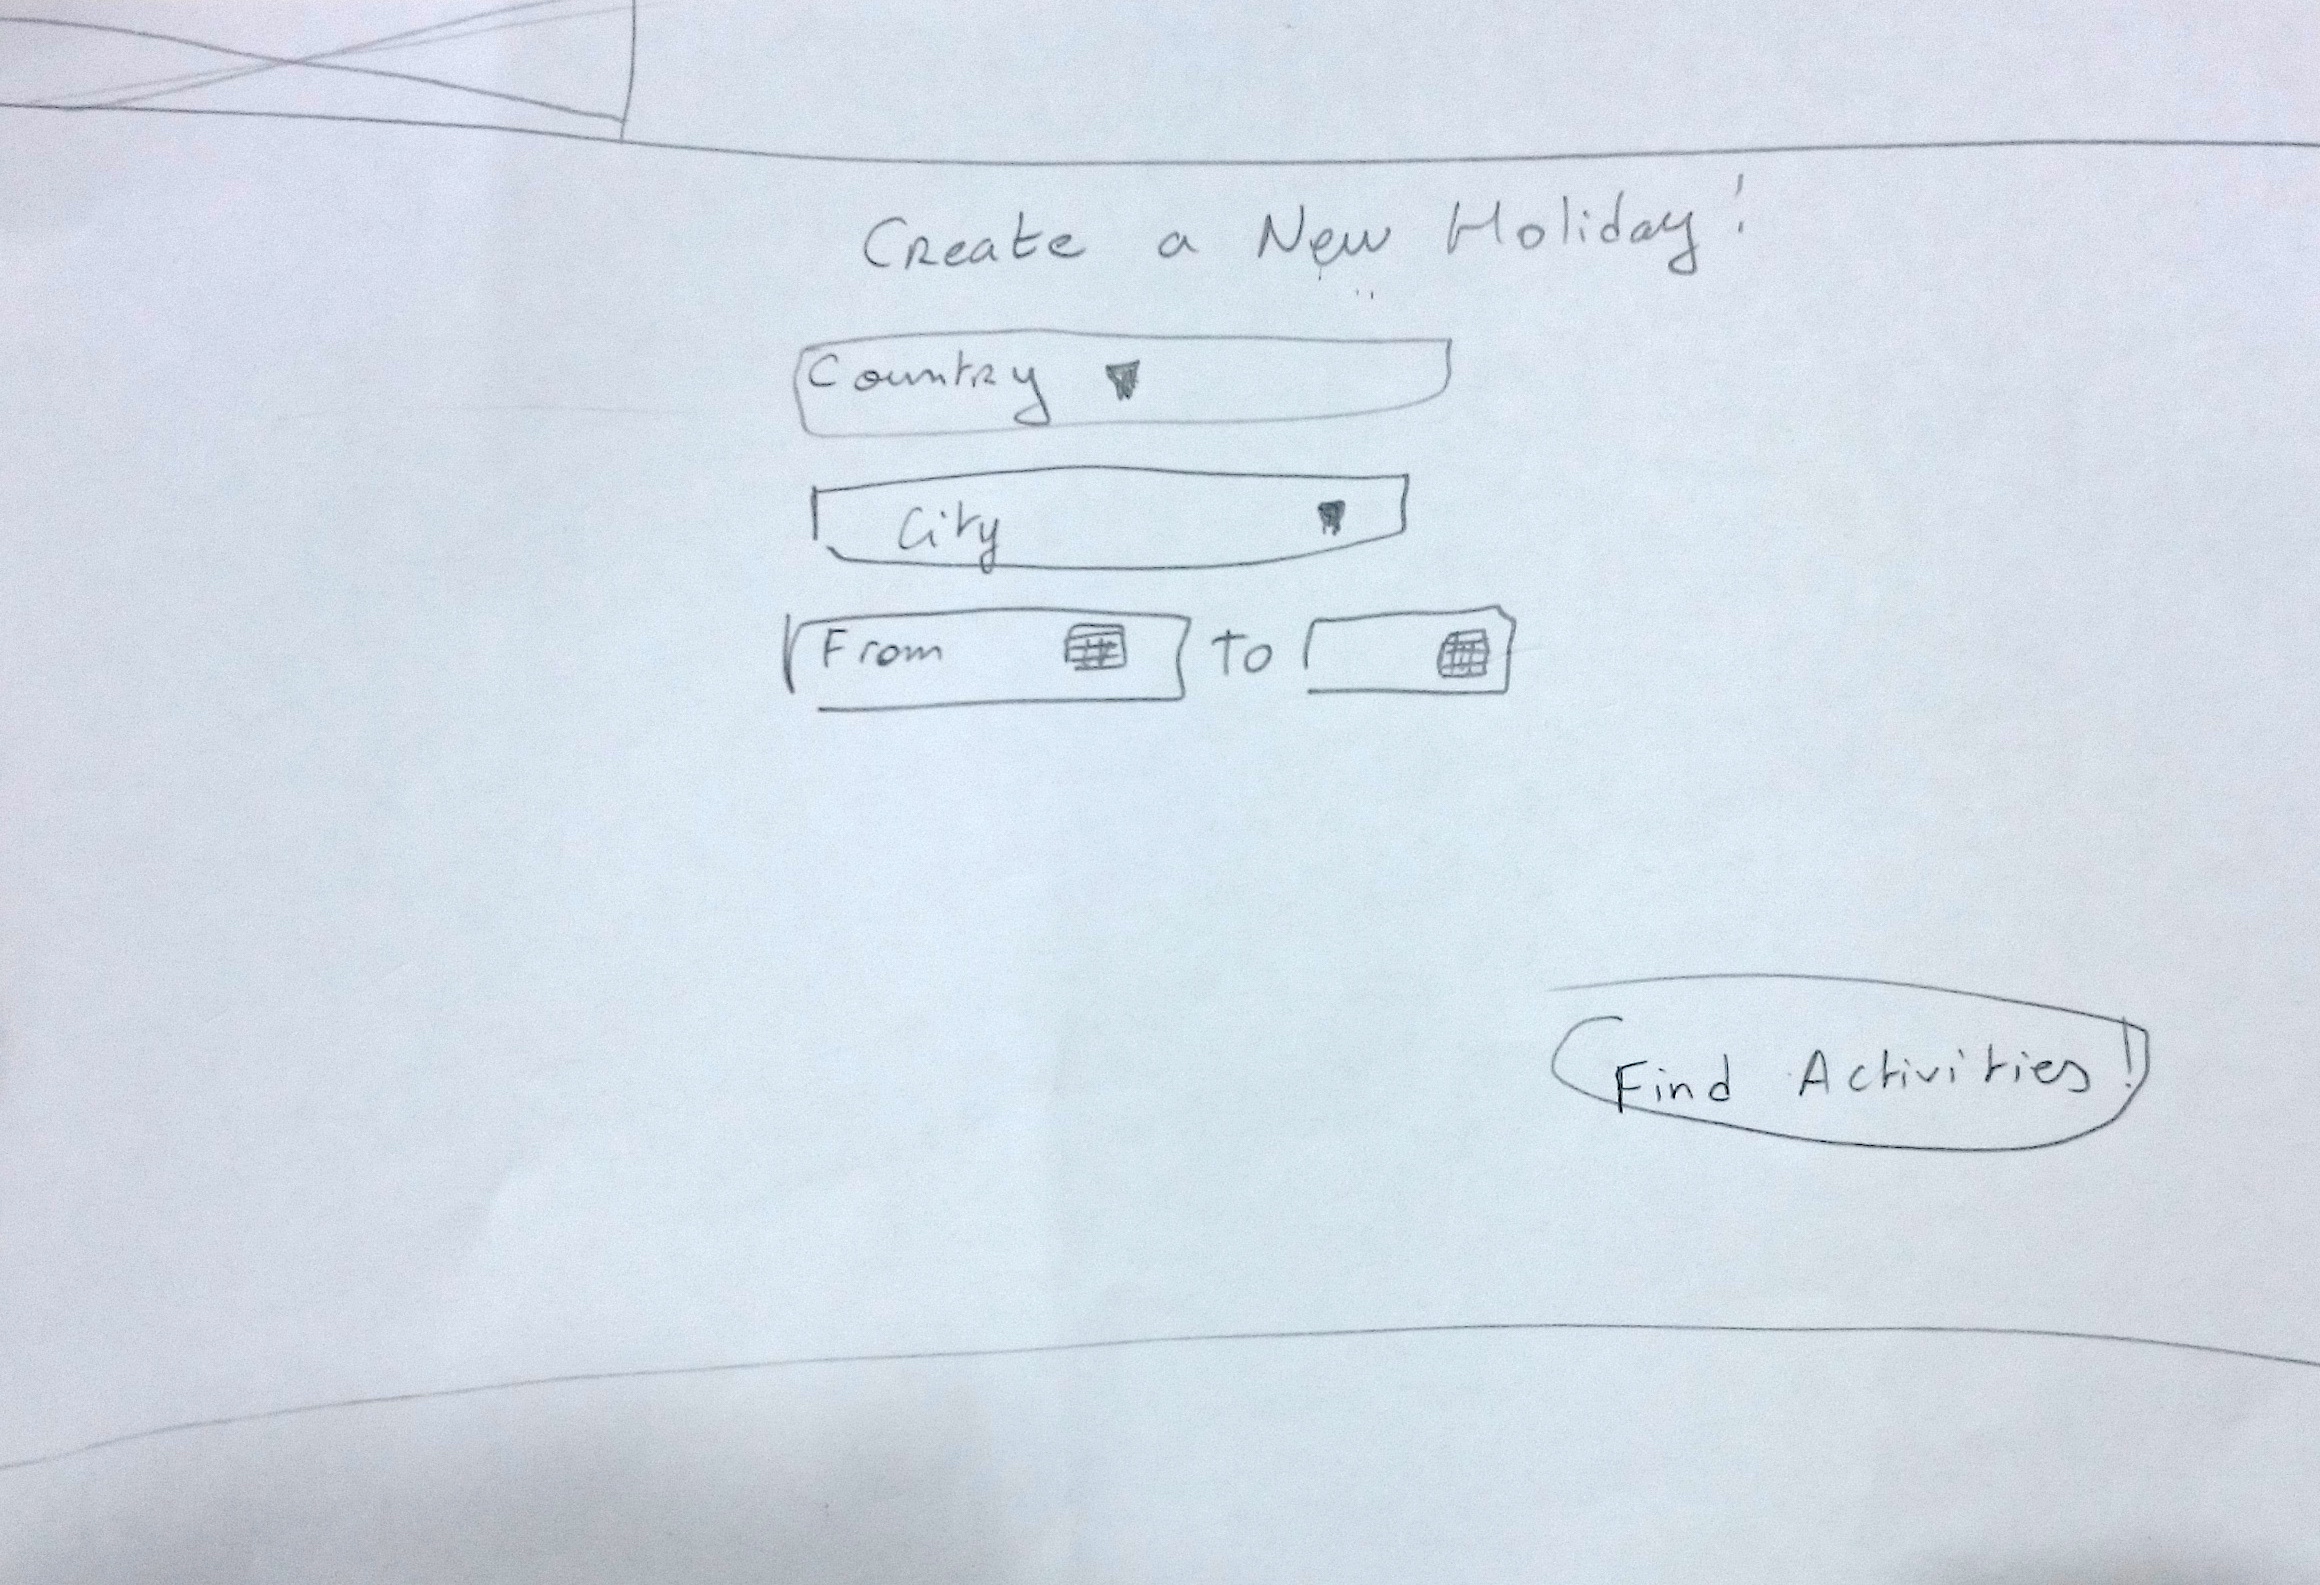 Create a New Holiday!
Country
City
From To
Find Activities!